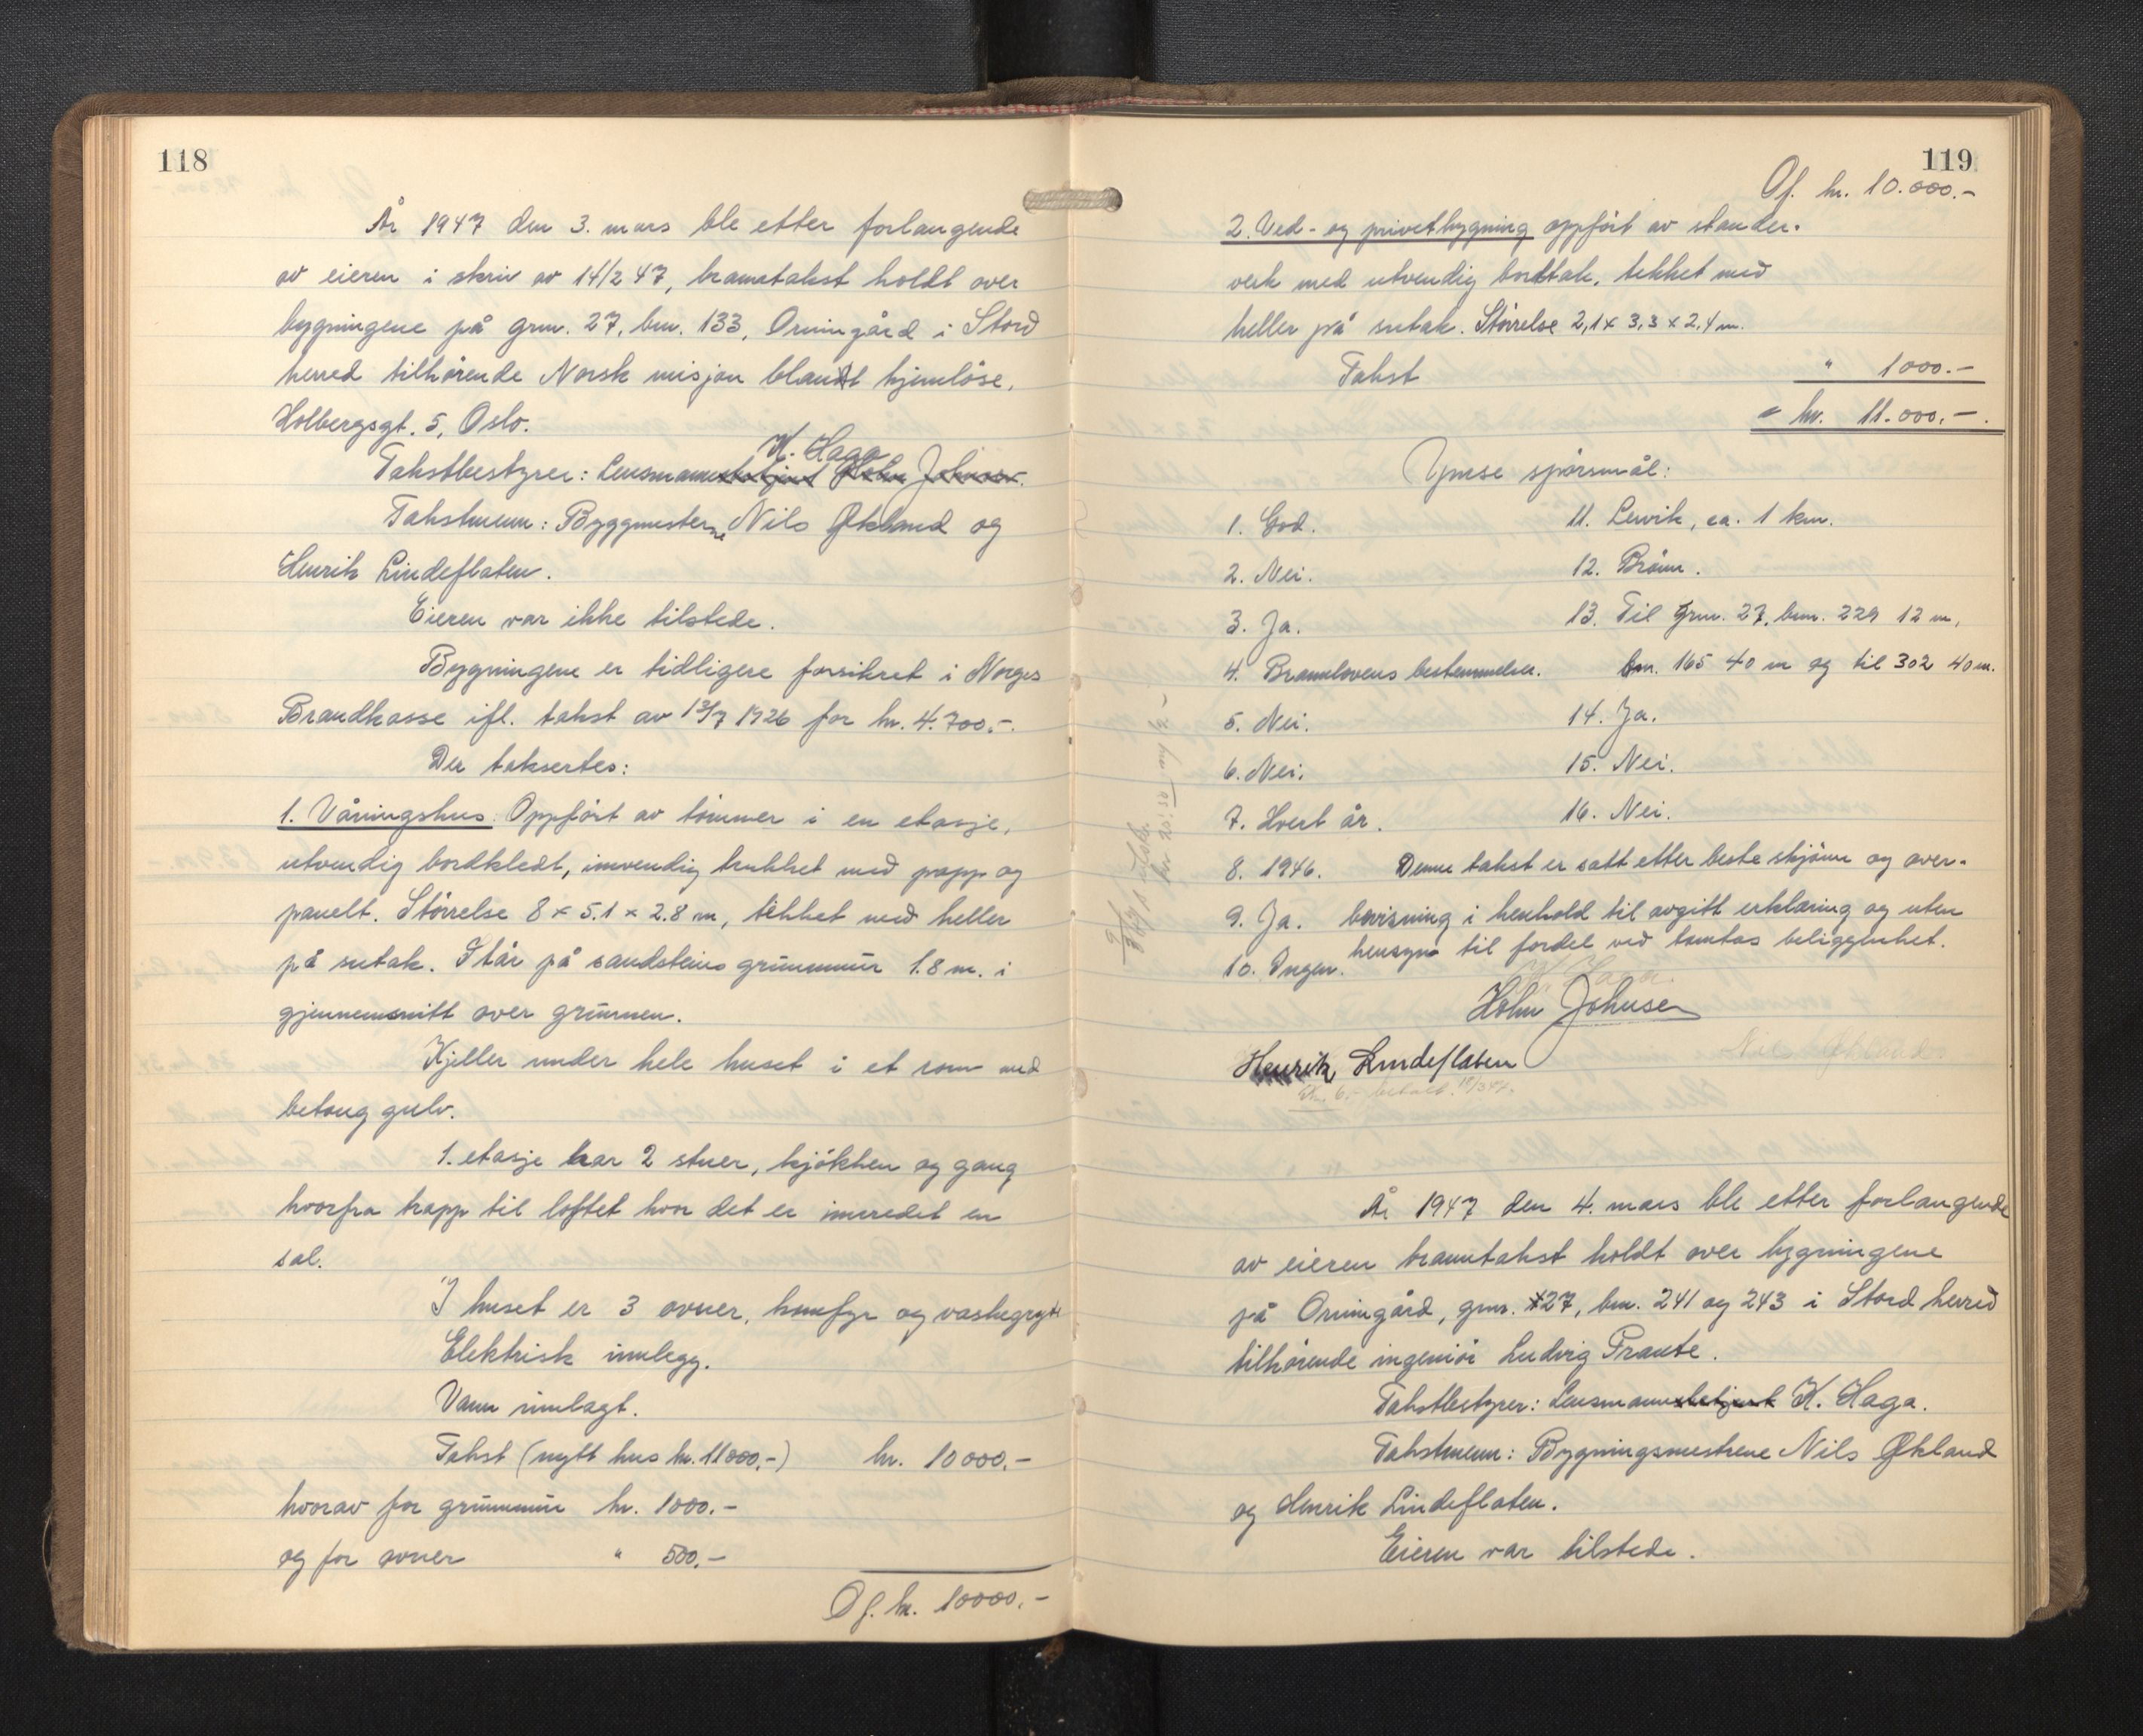 118
År 1947 den 3. mars ble etter forlangende
av eieren i skriv av 14/2 47, branntakst holdt over
bygningene på grnr. 27, bnr. 133, Orningård i Stord
herred tilhørende Norsk misjon blandt hjemløse,
Holbergsgt. 5, Oslo.
K. Haga
Takstbestyrer: Lensmannsbetjent Holm Johnsen.
Takstmenn: Byggmesterne Nils Økland og
Henrik Lindeflaten.
Eieren var ikke tilstede.
Bygningene er tidligere forsikret i Norges
Brandkasse ifl. takst av 13/7 1926 for kr. 4.700,-.
Der taksertes:
1. Våningshus: Oppført av tømmer i en etasje,
utvendig bordkledt, innvendig trukket med papp og
panelt. Størrelse 8 x 5.1 x 2.8 m, tekket med heller
på sutak. Står på sandsteins grunnmur 1.8 m. i
gjennemsnitt over grunnen.
Kjeller under hele huset i et rom med
betong gulv.
1. etasje har 2 stuer, kjøkken og gang
hvorfra trapp til loftet hvor det er innredet en
sal.
I huset er 3 ovner, komfyr og vaskegryte
Elektrisk innlegg.
Vann innlagt.
Takst (nytt hus kr. 11000,-) kr. 10000,-
hvorav for grunnmur kr. 1000.-
og for ovner " 500,-
Of. kr. 10000,-
119
Of. kr. 10.000.-
2. Ved- og privetbygning oppført av stender-
verk med utvendig bordtak, tekket med
heller på sutak. Størrelse 2,1 x 3,3 x 2,4 m.
Takst " 1000.-
kr. 11.000.-
Ymse spørsmål:
1. God. 11. Lervik, ca. 1 km.
2. Nei. 12. Brønn.
3. Ja. 13. Til grnr. 27, bnr. 229 12 m,
4. Brannlovens bestemmelser. bnr. 165 40 m og til 302 40 m.
5. Nei. 14. Ja.
6. Nei. 15. Nei.
7. Hvert år. 16. Nei.
8. 1946. Denne takst er satt etter beste skjønn og over-
9. Ja. bevisning i henhold til avgitt erklæring og uten
10. Ingen. hensyn til fordel ved tomtas beliggenhet.
K. Haga.
Holm Johnsen
Nils Økland
Henrik Lindeflaten
Kr. 6,- betalt 18/3 47.
År 1947 den 4. mars ble etter forlangende
av eieren branntakst holdt over bygningene
på Orningård, gnr. 27, bnr. 241 og 243 i Stord herred
tilhørende ingeniør Ludvig Prante.
Takstbestyrer: Lensmannsbetjent K. Haga.
Takstmenn: Bygningsmestrene Nils Økland
og Henrik Lindeflaten.
Eieren var tilstede.